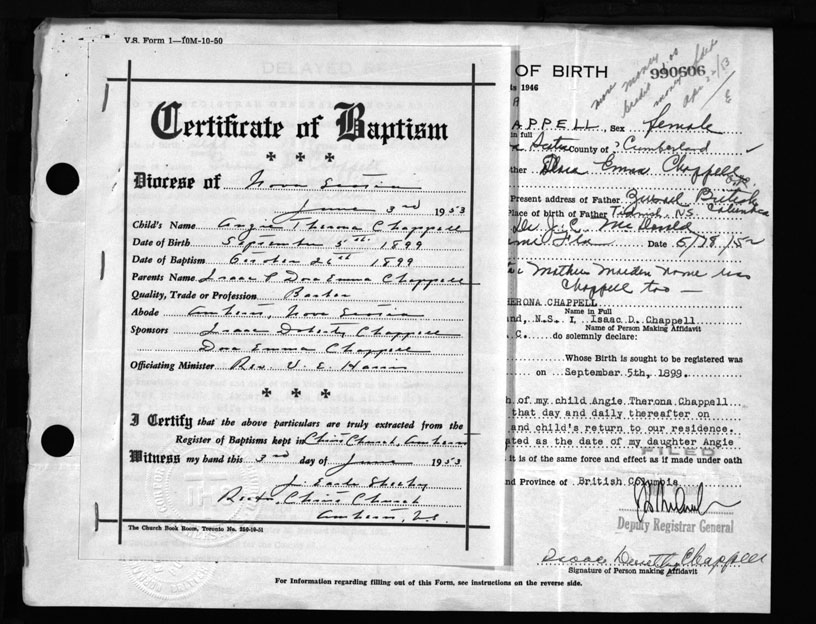 V.S. Form 1—10M-10-50
Certificate of Baptism
Diocese of Nova Scotia
June 3rd 1953
Child's Name Angie Therona Chappell
Date of Birth September 5th 1899
Date of Baptism October 26th 1899
Parents Name Isaac D Dora Emma Chappell
Quality, Trade or Profession
Abode Amherst, Nova Scotia
Sponsors Isaac Doherty Chappell
Dora Emma Chappell
Officiating Minister Rev. V. E. Harris
I Certify that the above particulars are truly extracted from the
Register of Baptisms kept in Christ Church, Amherst
Witness my hand this 3rd day of June 1953
J. Earle
Rector, Christ Church
Amherst, N.S.
The Church Book Room, Toronto No. 250-10-51
For Information regarding filling out of this Form, see instructions on the reverse side.
DELAYED
OF BIRTH 990606
more money
1946
APPELL, Sex female
in full
Scotia County of Cumberland
ther Dora Emma Chappell
Present address of Father British Columbia
Place of birth of Father Tidnish N.S.
Dr. J. C. McDonald
Date 5/28/52
Mother's Maiden name was
Chappell too —
HERONA CHAPPELL
Name in Full
and, N.S. I, Isaac D. Chappell
Name of Person Making Affidavit
.C. do solemnly declare:
Whose Birth is sought to be registered was
on September 5th, 1899.
h of my child Angie Therona Chappell
that day and daily thereafter on
and child's return to our residence.
ated as the date of my daughter Angie
FILED
it is of the same force and effect as if made under oath
nd Province of British Columbia
Deputy Registrar General
Isaac Chappell
Signature of Person making Affidavit